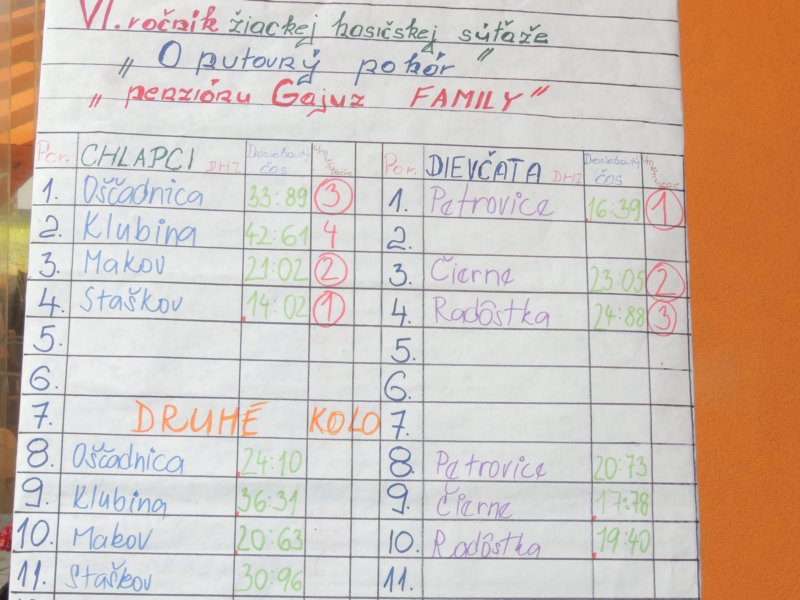 VI. ročník žiackej hasičskej súťaže
„ O putovný pohár "
„ penziónu Gajuz FAMILY"
Por. CHLAPCI DHZ Dosiahnutý čas Por. DIEVČATA DHZ Dosiahnutý čas
1. Oščadnica 33:89 3 1. Petrovice 16:39 1
2. Klubina 42:61 4 2.
3. Makov 21:02 2 3. Čierne 23:05 2
4. Staškov 14:02 1 4. Radôstka 24:88 3
5. 5.
6. 6.
7. DRUHÉ KOLO 7.
8. Oščadnica 24:10 8. Petrovice 20:73
9. Klubina 36:31 9. Čierne 17:78
10. Makov 20:63 10. Radôstka 19:40
11. Staškov 30:96 11.